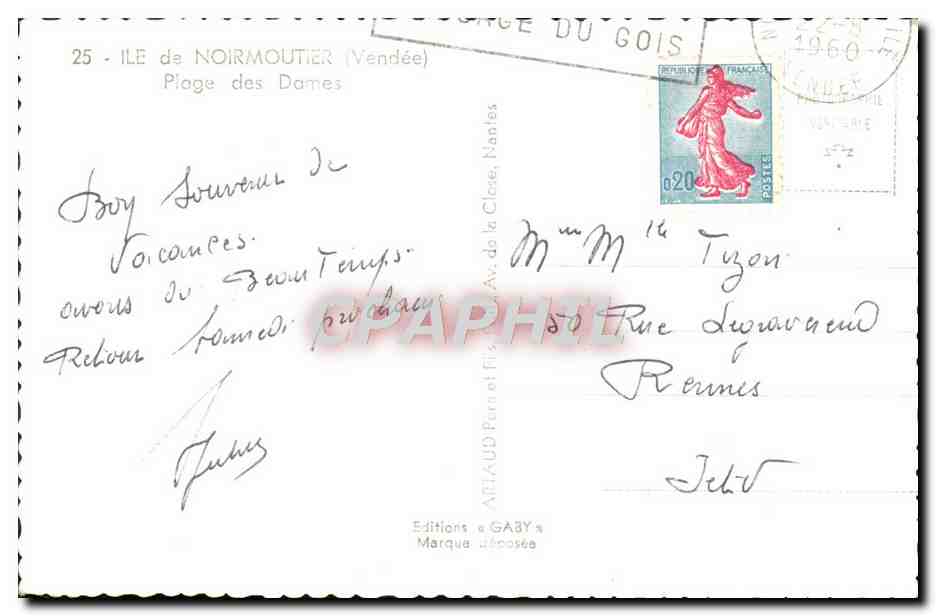 25 - ILE de NOIRMOUTIER (Vendée)
Plage des Dames
SAGE DU GOIS
1960
REPUBLIQUE FRANÇAISE
0,20
POSTES
Bon Souvenir de
Vacances.
avons du Beau Temps.
Retour samedi prochain
Mme Mlle Tizon
50 Rue Legraverend
Rennes
I et V
ARTAUD Père et Fils Av. de la Close, Nantes
CPAPHIL
Editions « GABY »
Marque déposée